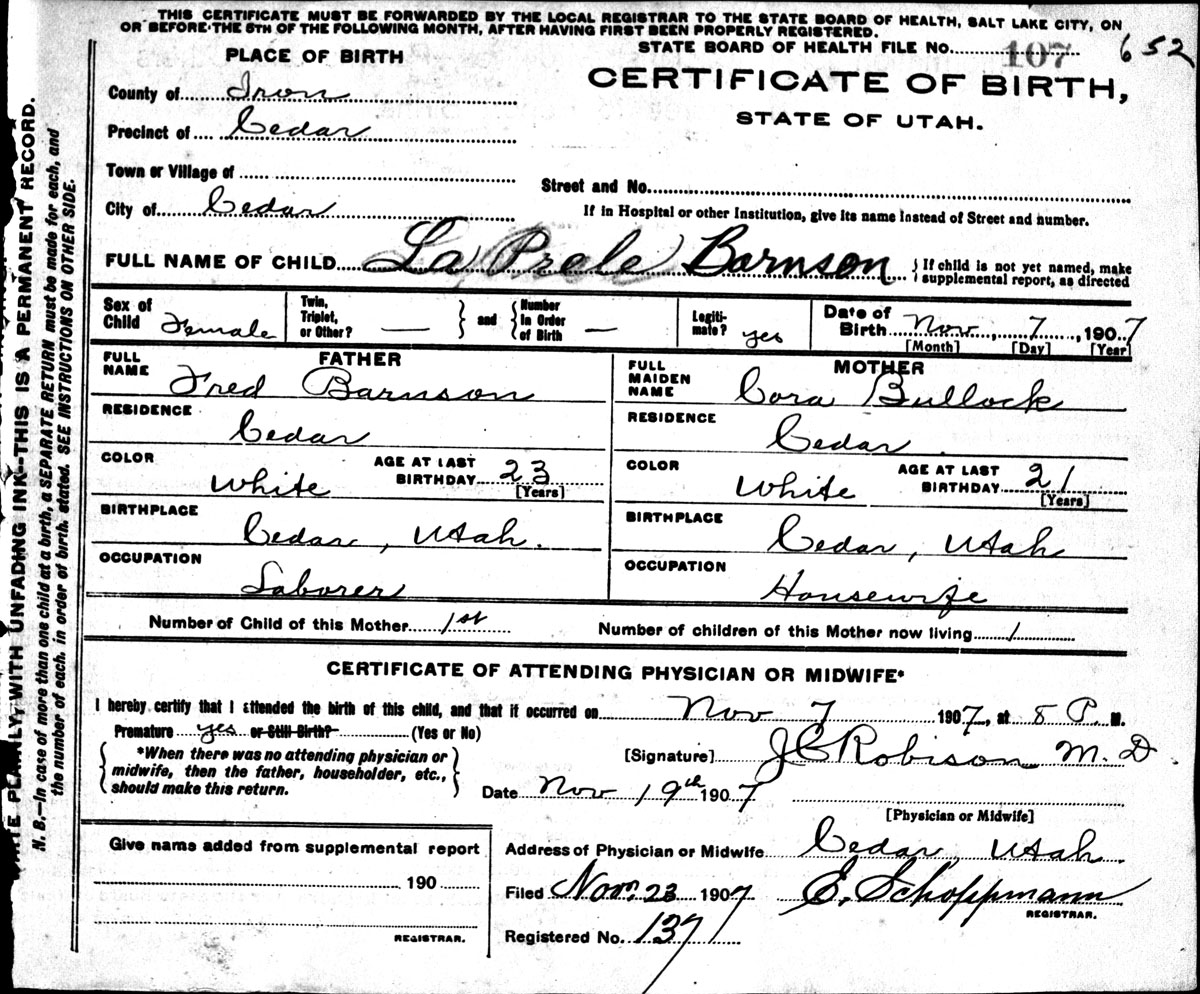 THIS CERTIFICATE MUST BE FORWARDED BY THE LOCAL REGISTRAR TO THE STATE BOARD OF HEALTH, SALT LAKE CITY, ON
OR BEFORE THE 5TH OF THE FOLLOWING MONTH, AFTER HAVING FIRST BEEN PROPERLY REGISTERED.
PLACE OF BIRTH
STATE BOARD OF HEALTH FILE No. 107 652
CERTIFICATE OF BIRTH,
STATE OF UTAH.
County of Iron
Precinct of Cedar
Town or Village of
Street and No.
City of Cedar
If in Hospital or other Institution, give its name instead of Street and number.
FULL NAME OF CHILD La Prele Barnson { If child is not yet named, make
supplemental report, as directed
Sex of Child Female
Twin, Triplet, or Other? —
and
Number in Order of Birth —
Legiti-mate? yes
Date of Birth Nov 7, 1907
[Month] [Day] [Year]
FATHER
FULL NAME Fred Barnson
RESIDENCE
Cedar
COLOR White AGE AT LAST BIRTHDAY 23
[Years]
BIRTHPLACE
Cedar, Utah.
OCCUPATION
Laborer
MOTHER
FULL MAIDEN NAME Cora Bullock
RESIDENCE
Cedar
COLOR White AGE AT LAST BIRTHDAY 21
[Years]
BIRTHPLACE
Cedar, Utah
OCCUPATION
Housewife
Number of Child of this Mother 1st Number of children of this Mother now living 1
CERTIFICATE OF ATTENDING PHYSICIAN OR MIDWIFE*
I hereby certify that I attended the birth of this child, and that it occurred on Nov 7 1907, at 8 P. M.
Premature yes or Still Birth? (Yes or No)
*When there was no attending physician or
midwife, then the father, householder, etc.,
should make this return.
[Signature] J C Robison M.D.
Date Nov 19th 1907
[Physician or Midwife]
Give name added from supplemental report
190
REGISTRAR.
Address of Physician or Midwife Cedar, Utah.
Filed Nov. 23 1907 E. Schoppmann
REGISTRAR.
Registered No. 137
PLAINLY, WITH UNFADING INK--THIS IS A PERMANENT RECORD.
N. B.—In case of more than one child at a birth, a SEPARATE RETURN must be made for each, and
the number of each, in order of birth, stated. SEE INSTRUCTIONS ON OTHER SIDE.